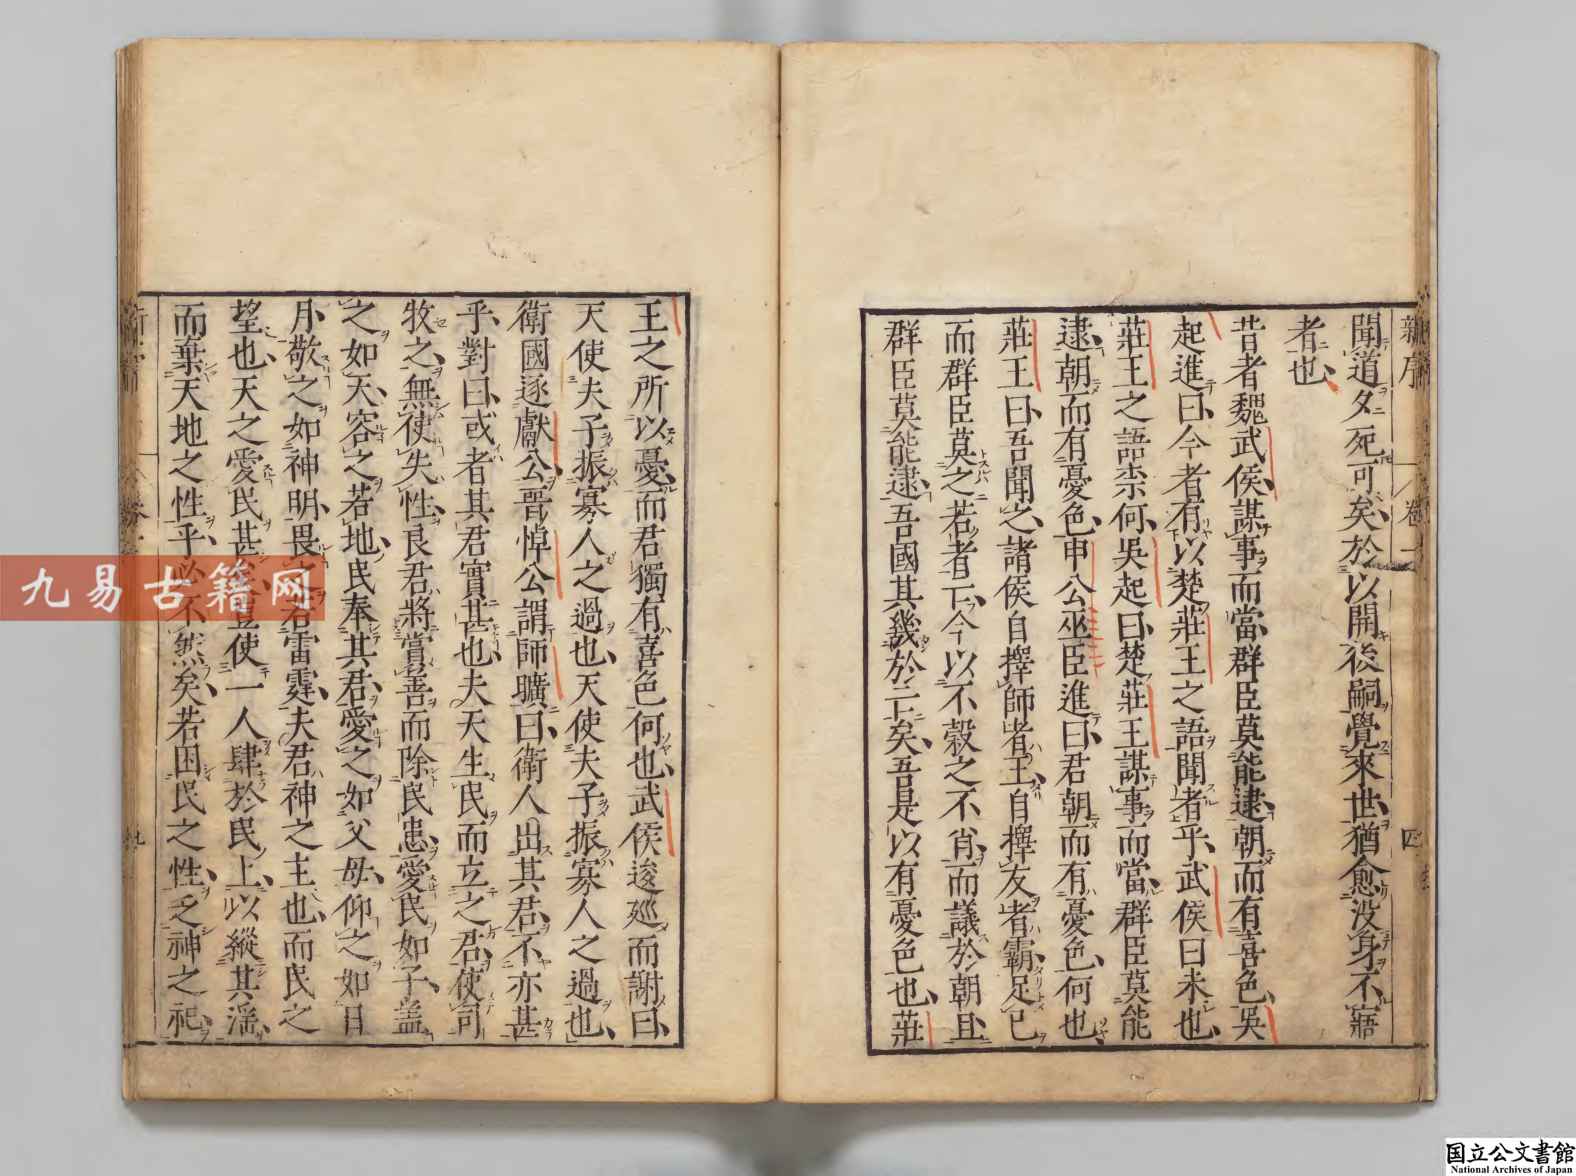 新序
卷一
四
聞道夕死可矣於以開後嗣覺來世猶愈没身不寤
者也
昔者魏武侯謀事而當群臣莫能逮朝而有喜色吳
起進曰今者有以楚莊王之語聞者乎武侯曰未也
莊王之語柰何吳起曰楚莊王謀事而當群臣莫能
逮朝而有憂色申公巫臣進曰君朝而有憂色何也
莊王曰吾聞之諸侯自擇師者王自擇友者霸足已
而群臣莫之若者亡今以不榖之不肖而議於朝且
群臣莫能逮吾國其幾於亡矣吾是以有憂色也莊
王之所以憂而君獨有喜色何也武侯逡巡而謝曰
天使夫子振寡人之過也天使夫子振寡人之過也
衛國逐獻公晉悼公謂師曠曰衛人出其君不亦甚
乎對曰或者其君實甚也夫天生民而立之君使司
牧之無使失性良君將賞善而除民患愛民如子盖
之如天容之若地民奉其君愛之如父母仰之如日
月敬之如神明畏之若雷霆夫君神之主也而民之
望也天之愛民甚矣豈使一人肆於民上以縱其淫
而棄天地之性乎必不然矣若困民之性乏神之祀
九易古籍网
国立公文書館
National Archives of Japan